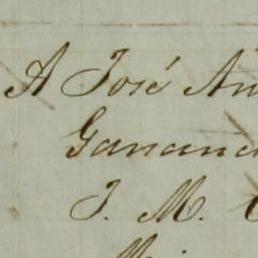 A José An
Gananci
J. M. C